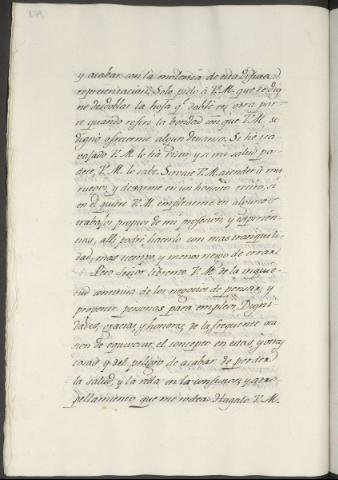 y acabar con la molestia de esta difusa
representacion. Solo pido à V.M. que se dig
ne desdoblar la hoja q.e doblé en otra par-
te quando referi la bondad con que V.M. se
dignó ofrecerme algun descanso. Si he tra-
vajado V.M. lo ha visto y si mi salud pa-
dece, V.M. lo sabe. Sirvase V.M. atender à mis
ruegos, y dexarme en un honesto retiro, si
en el quiere V.M. emplearme en algunos
trabajos propios de mi profesion y experien-
cias, alli podré hacerlo con mas tranquili-
dad, mas tiempo y menos riesgo de errar.
Pero Señor libreme V.M. de la inquie-
tud continua de los negocios de pensar, y
proponer personas para empleos, Digni-
dades, gracias y honores de la frequente oca-
sion de equivocar el concepto en estas, y otras
cosas, y del peligro de acabar de perder
la salud, y la vida en la confusion y atro-
pellamiento que me rodea. Hagalo V.M.